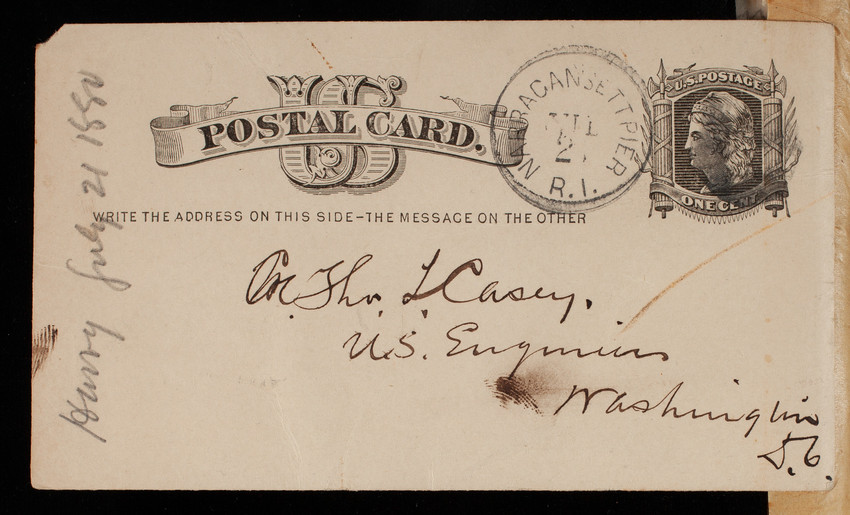 US
POSTAL CARD.
WRITE THE ADDRESS ON THIS SIDE–THE MESSAGE ON THE OTHER
NARRAGANSETT PIER
JUL
21
R.I.
U.S. POSTAGE
ONE CENT
Tho. L. Casey,
U.S. Engineers
Washington
D.C.
Harry July 21 1880